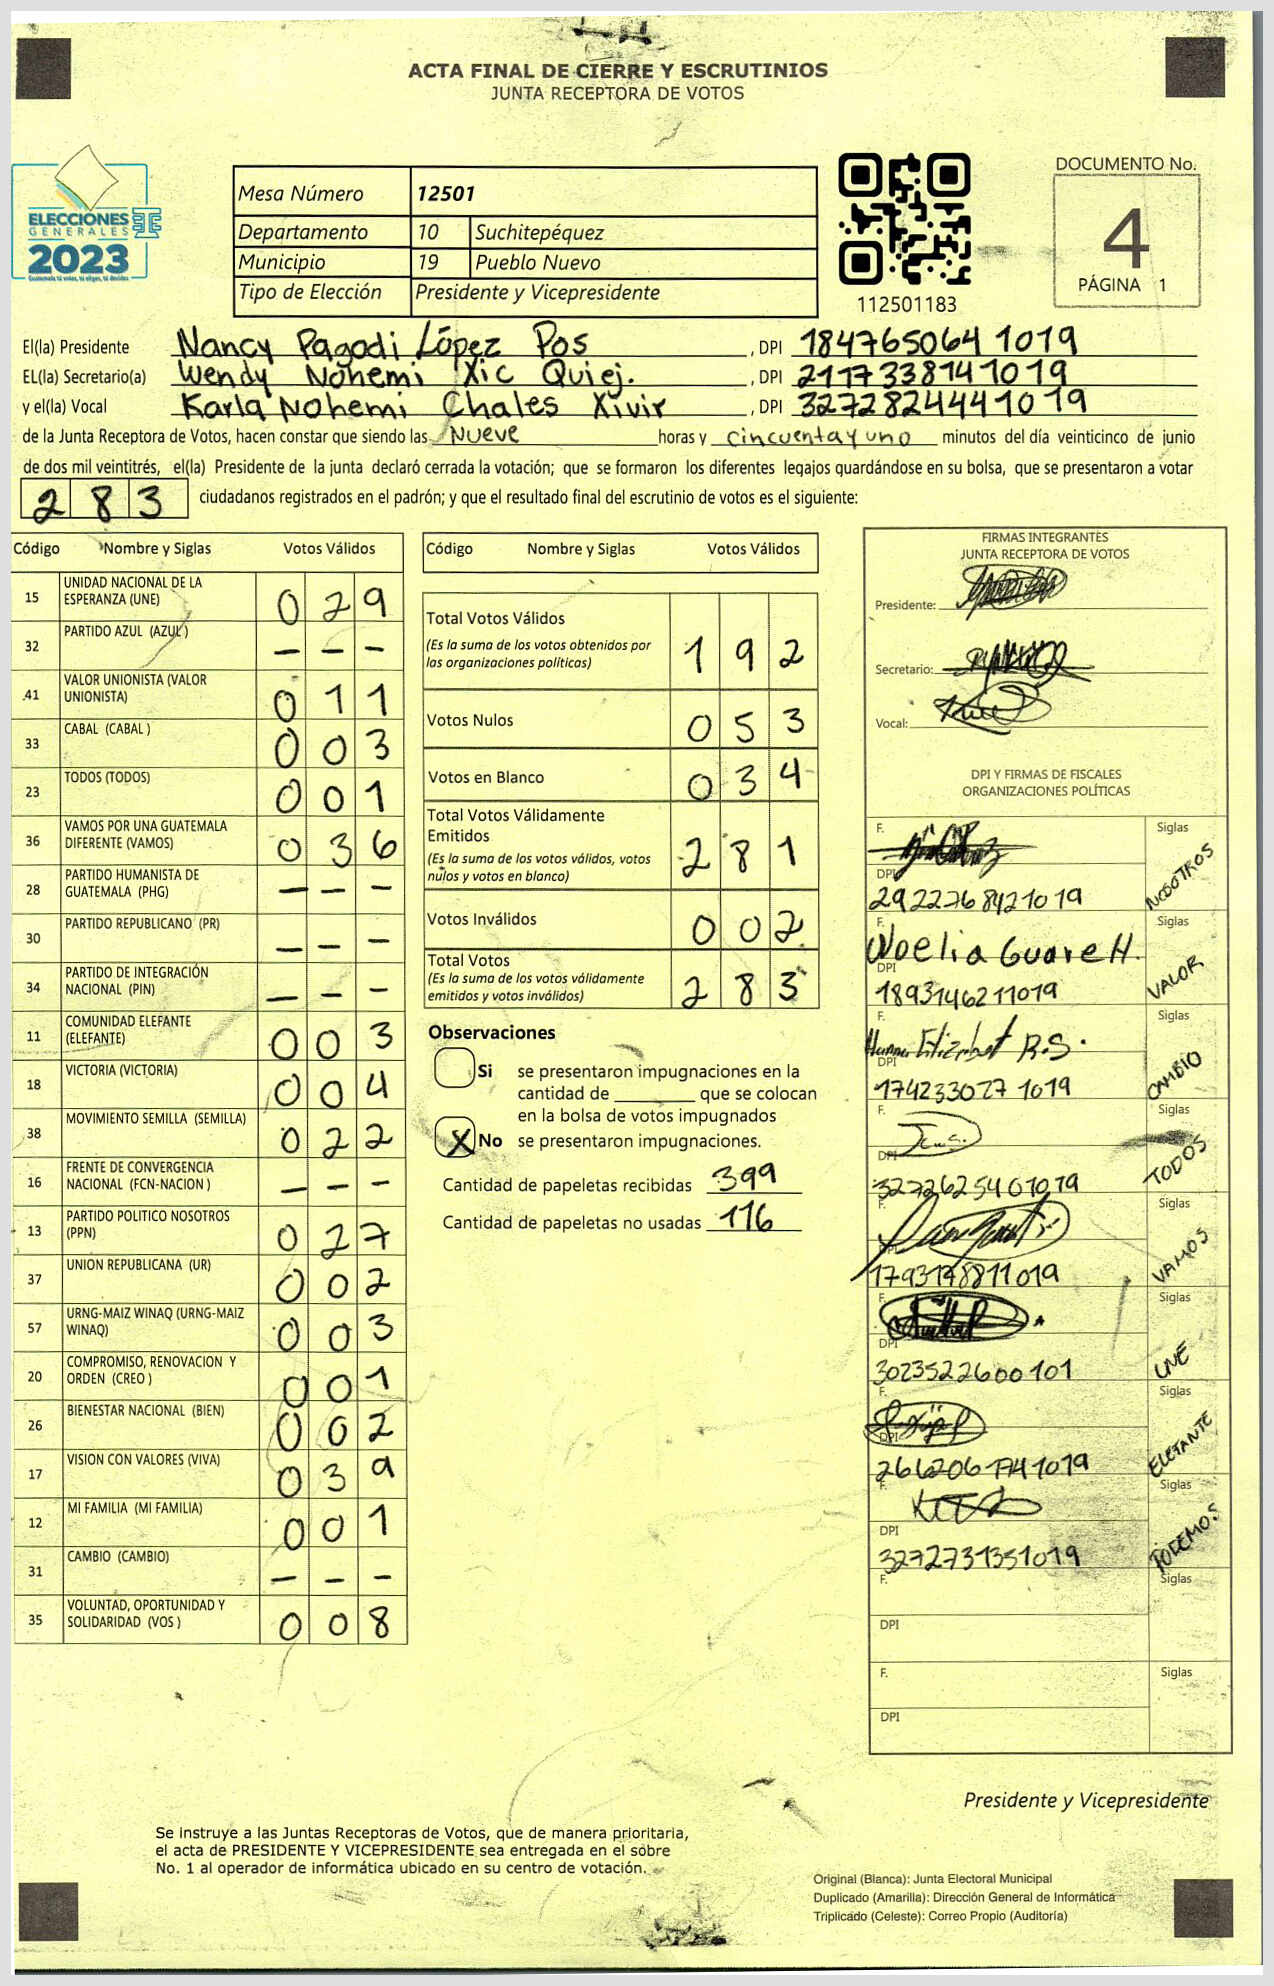 ACTA FINAL DE CIERRE Y ESCRUTINIOS
JUNTA RECEPTORA DE VOTOS
ELECCIONES
GENERALES
2023
Mesa Número 12501
Departamento 10 Suchitepéquez
Municipio 19 Pueblo Nuevo
Tipo de Elección Presidente y Vicepresidente
112501183
DOCUMENTO No.
4
PÁGINA 1
El(la) Presidente Nancy Pagodi López Pos , DPI 1847650641019
EL(la) Secretario(a) Wendy Nohemi Xic Quiej. , DPI 2117338141019
y el(la) Vocal Karla Nohemi Chales Xivir , DPI 3272824441019
de la Junta Receptora de Votos, hacen constar que siendo las Nueve horas y cincuenta y uno minutos del día veinticinco de junio
de dos mil veintitrés, el(la) Presidente de la junta declaró cerrada la votación; que se formaron los diferentes legajos guardándose en su bolsa, que se presentaron a votar
283 ciudadanos registrados en el padrón; y que el resultado final del escrutinio de votos es el siguiente:
Código Nombre y Siglas Votos Válidos
15 UNIDAD NACIONAL DE LA ESPERANZA (UNE) 029
32 PARTIDO AZUL (AZUL) - - -
41 VALOR UNIONISTA (VALOR UNIONISTA) 011
33 CABAL (CABAL ) 003
23 TODOS (TODOS) 001
36 VAMOS POR UNA GUATEMALA DIFERENTE (VAMOS) 036
28 PARTIDO HUMANISTA DE GUATEMALA (PHG) - - -
30 PARTIDO REPUBLICANO (PR) - - -
34 PARTIDO DE INTEGRACIÓN NACIONAL (PIN) - - -
11 COMUNIDAD ELEFANTE (ELEFANTE) 003
18 VICTORIA (VICTORIA) 004
38 MOVIMIENTO SEMILLA (SEMILLA) 022
16 FRENTE DE CONVERGENCIA NACIONAL (FCN-NACION ) - - -
13 PARTIDO POLITICO NOSOTROS (PPN) 027
37 UNION REPUBLICANA (UR) 002
57 URNG-MAIZ WINAQ (URNG-MAIZ WINAQ) 003
20 COMPROMISO, RENOVACION Y ORDEN (CREO ) 001
26 BIENESTAR NACIONAL (BIEN) 002
17 VISION CON VALORES (VIVA) 039
12 MI FAMILIA (MI FAMILIA) 001
31 CAMBIO (CAMBIO) - - -
35 VOLUNTAD, OPORTUNIDAD Y SOLIDARIDAD (VOS ) 008
Código Nombre y Siglas Votos Válidos
Total Votos Válidos 192
(Es la suma de los votos obtenidos por
las organizaciones políticas)
Votos Nulos 053
Votos en Blanco 034
Total Votos Válidamente
Emitidos 281
(Es la suma de los votos válidos, votos
nulos y votos en blanco)
Votos Inválidos 002
Total Votos 283
(Es la suma de los votos válidamente
emitidos y votos inválidos)
Observaciones
Si se presentaron impugnaciones en la
cantidad de ________ que se colocan
en la bolsa de votos impugnados
X No se presentaron impugnaciones.
Cantidad de papeletas recibidas 399
Cantidad de papeletas no usadas 116
FIRMAS INTEGRANTES
JUNTA RECEPTORA DE VOTOS
Presidente:
Secretario:
Vocal:
DPI Y FIRMAS DE FISCALES
ORGANIZACIONES POLÍTICAS
F. Siglas
DPI
2922768421019 NOSOTROS
F. Noelia Guare H. Siglas
DPI
1893146211019 VALOR
F. R.S. Siglas
DPI
1742330271019 CAMBIO
F. Siglas
DPI
3272625401019 TODOS
F. Siglas
DPI
1793178811019 VAMOS
F. Siglas
DPI
3023522600101 UNE
F. Siglas
DPI
2662061741019 ELEFANTE
F. Siglas
DPI
3272731351019 PODEMOS
F. Siglas
DPI
F. Siglas
DPI
Presidente y Vicepresidente
Se instruye a las Juntas Receptoras de Votos, que de manera prioritaria,
el acta de PRESIDENTE Y VICEPRESIDENTE sea entregada en el sobre
No. 1 al operador de informática ubicado en su centro de votación.
Original (Blanca): Junta Electoral Municipal
Duplicado (Amarilla): Dirección General de Informática
Triplicado (Celeste): Correo Propio (Auditoría)